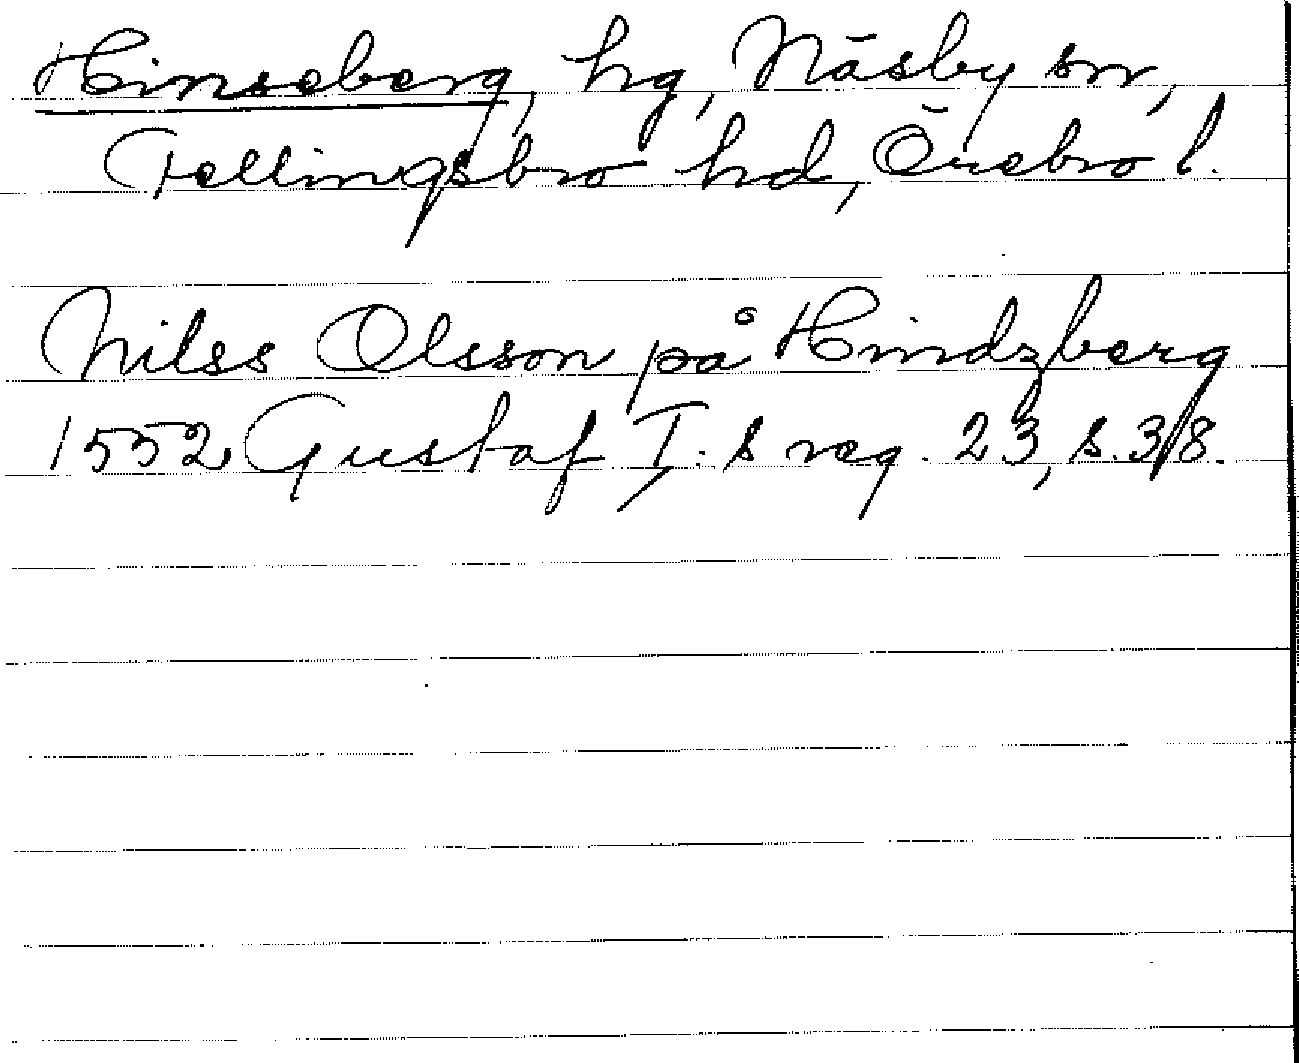 Hinseberg, hg, Näsby sn,
Fellingsbro hd, Örebro l.
Nilss Olsson på Hindzberg
1552 Gustaf I:s reg. 23, s. 318.